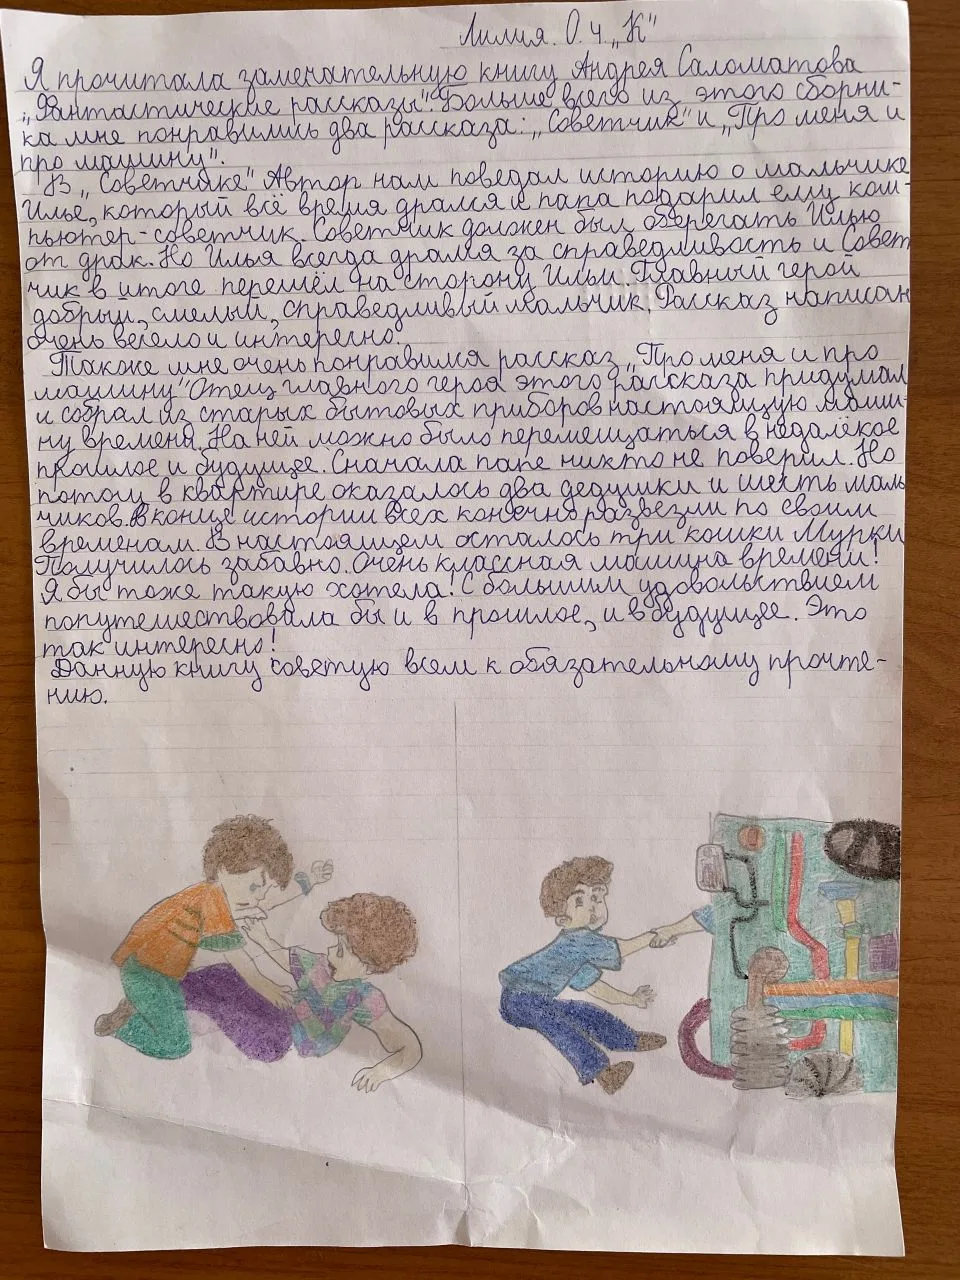 Лилия. О. ч. „К"
Я прочитала замечательную книгу Андрея Саломатова
„Фантастические рассказы". Больше всего из этого сборни-
ка мне понравились два рассказа: „Советчик" и „Про меня и
про машину".
В „Советчике" Автор нам поведал историю о мальчике
Илье, который всё время дрался и папа подарил ему ком-
пьютер-советчик. Советчик должен был оберегать Илью
от драк. Но Илья всегда дрался за справедливость и Совет
чик в итоге перешёл на сторону Ильи. Главный герой
добрый, смелый, справедливый мальчик. Рассказ написан
очень весело и интересно.
Также мне очень понравился рассказ „Про меня и про
машину" Отец главного героя этого рассказа придумал
и собрал из старых бытовых приборов настоящую маши-
ну времени. На ней можно было перемещаться в недалёкое
прошлое и будущее. Сначала папе никто не поверил. Но
потом в квартире оказалось два дедушки и шесть маль
чиков. В конце истории всех конечно развезли по своим
временам. В настоящем осталось три кошки Мурки
Получилось забавно. Очень классная машина времени!
Я бы тоже такую хотела! С большим удовольствием
попутешествовала бы и в прошлое, и в будущее. Это
так интересно!
Данную книгу советую всем к обязательному прочте-
нию.